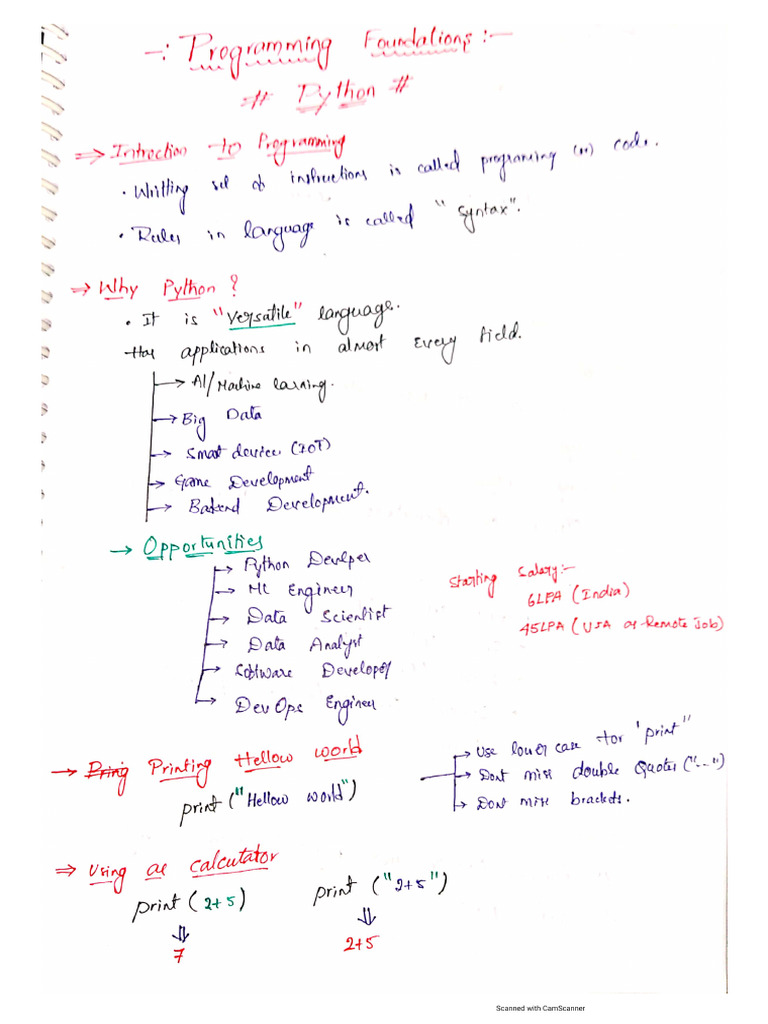 -: Programming Foundations :-
# Python #
⇒ Introction to Programming
• Writting set of instructions is called programing (or) code.
• Rules in language is called "syntax".
⇒ Why Python?
• It is "versatile" language.
Has applications in almost every field.
→ AI/Machine learning.
→ Big Data
→ Smart devices (IOT)
→ Game Development
→ Backend Development.
→ Opportunities
→ Python Devlper
→ ML Engineer
→ Data Scientist
→ Data Analyst
→ Software Developer
→ DevOps Engineer
Starting Salary:-
6LPA (India)
45LPA (USA or Remote Job)
→ Pring Printing Hellow world
print ("Hellow world")
→ Use lower case for 'print"
→ Dont miss double Quotes ("--")
→ Dont miss brackets.
⇒ Using as calcutator
print (2+5)
⇓
7
print ("2+5")
⇓
2+5
Scanned with CamScanner